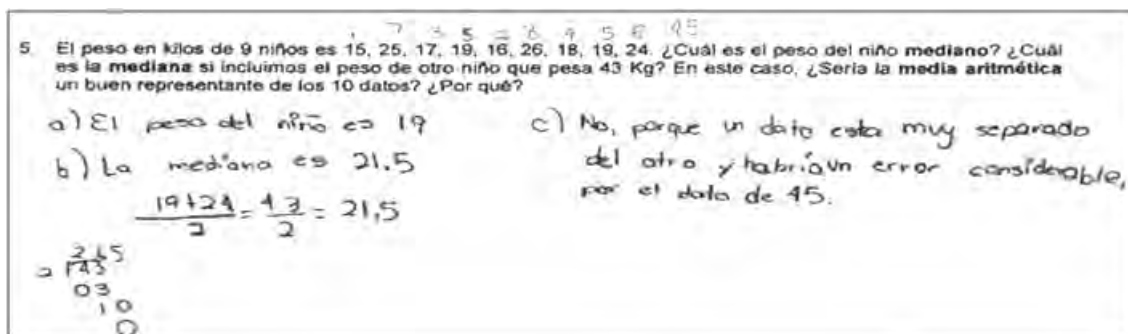 1 7 3 5 2 8 4 5 6 45
5 El peso en kilos de 9 niños es 15, 25, 17, 19, 16, 26, 18, 19, 24. ¿Cuál es el peso del niño mediano? ¿Cuál
es la mediana si incluimos el peso de otro niño que pesa 43 Kg? En este caso, ¿Sería la media aritmética
un buen representante de los 10 datos? ¿Por qué?
a) El peso del niño es 19
b) La mediana es 21.5
19+24 = 43 = 21,5
2 2
215
2 43
03
10
0
c) No, porque un dato esta muy separado
del otro y habría un error considerable,
por el dato de 45.